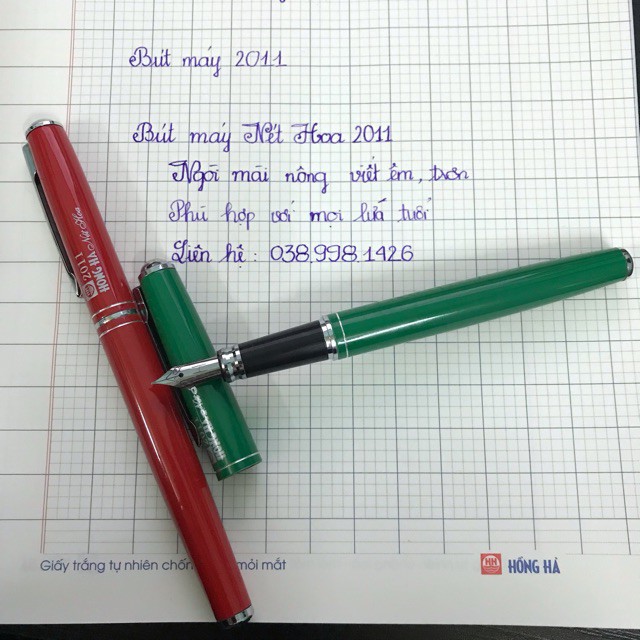 Bút máy 2011
Bút máy Nét Hoa 2011
Ngòi mài nông, viết êm, trơn
Phù hợp với mọi lứa tuổi
Liên hệ: 038.998.1426
HỒNG HÀ Nét Hoa
2011
Giấy trắng tự nhiên chốn mỏi mắt
HỒNG HÀ